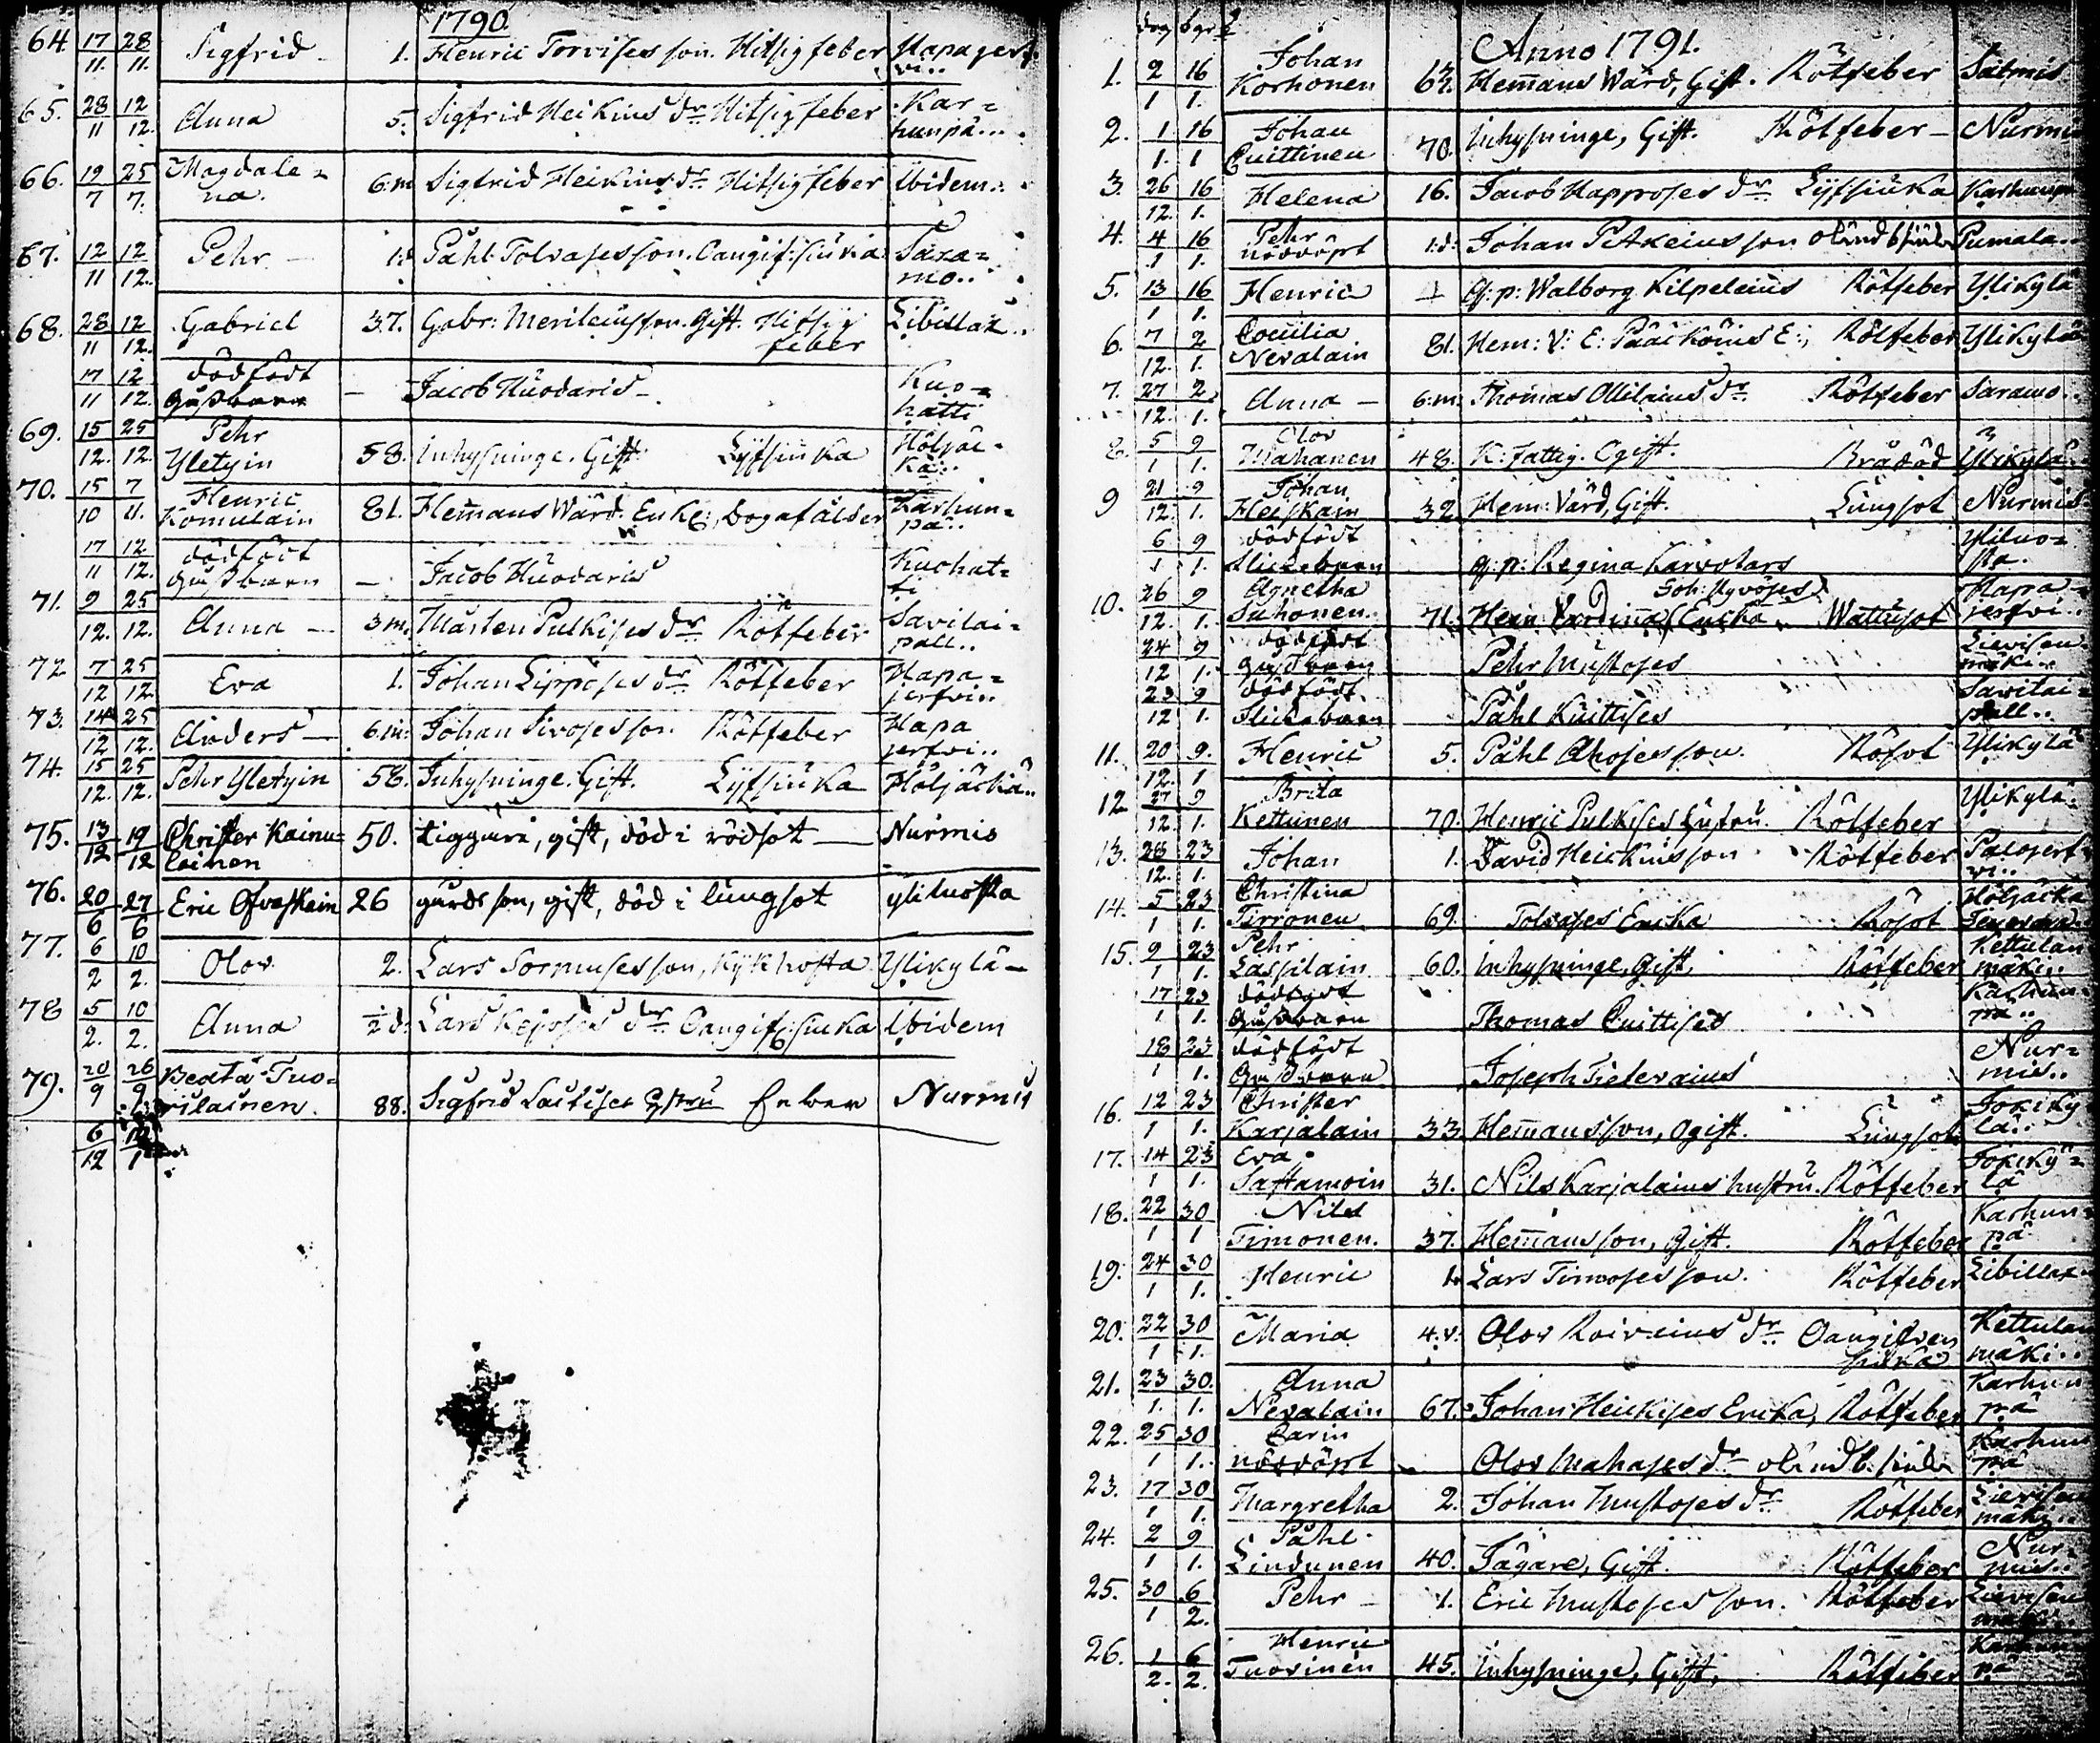 1790
64. 17/11. 28/11. Sigfrid - 1. Henric Torvises son. Hitsig feber Hapajerf-
vi..
65. 28/11 12/12. Anna 5. Sigfrid Heikins dr Hitsig feber Kar=
hunpä...
66. 19/7 25/7. Magdale=
na. 6:m Sigfrid Heikins dr Hitsig feber Ibidem..
67. 12/11 12/12. Pehr - Påhl Tolvases son. Oangif: siuka Sara=
mo..
68. 28/11 12/12. Gabriel 37. Gabr: Merileins son. Gift. Hitsig
feber
17/11 12/12. dödfödt
Gußbarn - Jacob Kuodaris - Kuo=
hatti
69. 15/12. 25/12. Pehr
Yletyin 58. Inhysninge. Gift. Lyfsiuka Höljäc-
kä..
70. 15/10 7/11. Henric
Komulain 81. Hem̄ans Wärd. Enkl: Bogafålder Karhun=
pä..
17/11 12/12. dödfödt
Gußbarn - Jacob Kuodaris Kuohat=
ti
71. 9/12. 25/12. Anna - 3m. Mårten Pulkises dr Rötfeber Savilai=
pall..
72 7/12 25/12. Eva 1. Johan Lipposes dr Rötfeber Hapa=
jerfvi..
73. 14/12 25/12. Anders - 6.m: Johan Sivoses son Rötfeber Hapa
jerfvi..
74. 15/12. 25/12. Pehr Yletyin 58. Inhysninge. Gift. Lyfsiuka Höljäckä..
75. 13/12 19/12 Christer Kainu=
lainen 50. tiggare, gift, död i rödsot - Nurmis
76. 20/6 27/6 Eric Ofvaskain 26 gårds son, gift, död i lungsot yliluosta
77. 6/2 10/2. Olov 2. Lars Sormuses son, Kykhosta Ylikylä -
78 5/2. 10/2. Anna 1/2 d: Lars Keposes dr Oangif: siuka Ibidem
79. 20/9 26/9 Beata Tuo=
rilainen. 88. Sigfrid Laitises hustru feber Nurmis
6/12
Anno 1791.
1. 2/1 16/1. Johan
Korhonen Hem̄ans Wärd, Gift. Rötfeber Salmis
2. 1/1. 16/1 Johan
Quittinen 70. Inhysninge, Gift. Rötfeber - Nurmi
3. 26/12. 16/1. Helena 16. Jacob Kapposes dr Lyfsiuka Karhunpä
4. 4/1 16/1. Pehr
nöddöpt 1:d: Johan Pitkeins son Pumala..
5. 13/1 16/1. Henric Q: p: Walborg Kilpeleins Rötfeber Ylikylä
6. 7/12. 2/1. Cecilia
Nevalain 81. Hem: V: E: Pääkköins E:, Rötfeber Ylikylä
7. 27/12. 2/1. Anna - 6:m. Thomas Ollilains dr Rötfeber Saramo.
8. 5/1 9/1. Olov
Mahanen 48. K: fattig. Ogift. Brådöd Ylikylä
9 21/12. 9/1. Johan
Heiskain 32 Hem: Värd, Gift. Lungsot Nurmis
6/1 9/1. dödfödt
Flickebarn Q: p: Regina Karvotars Yliluo=
sta.
10. 26/12. 9/1. Agnetha
Suhonen. 71. Hem: Vardinna Joh: Kyvöses Encka Wattusot Hapa=
jerfvi..
24/12 9/1. dödfödt
Gußbarn Pehr Mustoses Lievisen-
mäki..
23/12 9/1. dödfödt.
Flickebarn Påhl Kuittises Savilai=
pall..
11. 20/12. 9./1 Henric 5. Påhl Ahoses son. Rösot Ylikylä
12 27/12. 9/1. Brita
Kettunen 70. Henric Pulkises hustru. Rötfeber Ylikylä.
13. 28/12. 23/1. Johan 1. David Heickins son Rötfeber Palojerf-
vi..
14. 5/1 23/1. Christina
Tirronen 69. Tolvases Encka Rösot Höljäckä
15. 9/1 23/1. Pehr
Lassilain 60. Inhysninge, Gift. Rötfeber Kettulan
mäki..
17/1. 23/1. dödfödt
Gußbarn Thomas Quittises Karhun-
pä..
18/1 23/1. dödfödt
Gußbarn Joseph Pieterains Nur=
mis..
16. 12/1 23/1. Christer
Karjalain 33. Hem̄ansson, Ogift. Lungsot Jokiky
lä..
17. 14/1 23/1. Eva
Sastamoin 31. Nils Karjalains hustru. Rötfeber Jokiky=
lä
18. 22/1 30/1 Nils
Timonen. 37. Hem̄ansson, Gift. Rötfeber Karhun=
pä
19. 24/1 30/1. Henric 1. Lars Timoses son. Rötfeber Libillax
20. 22/1 30/1. Maria 4.v. Olov Roiveins dr Oangifven
siuka Kettulan
mäki..
21. 23/1. 30./1. Anna
Nevalain 67. Johan Heickises Encka, Rötfeber Karhun
pä
22. 25/1 30/1. Carin
nöddöpt Olov Mahases dr Karhun
pä
23. 17/1 30/1. Margretha 2. Johan Mustoses dr Rötfeber Lievisen
mäki..
24. 2/1 9/1. Påhl
Lindunen 40. Jägare, Gift. Rötfeber Nur
mis..
25. 30/1 6/2. Pehr - 1. Eric Mustoses son. Rötfeber Lievisen
mäki
26. 1/2. 6/2. Henric
Tuovinen 45. Inhysninge, Gift, Rötfeber Karhun
pä